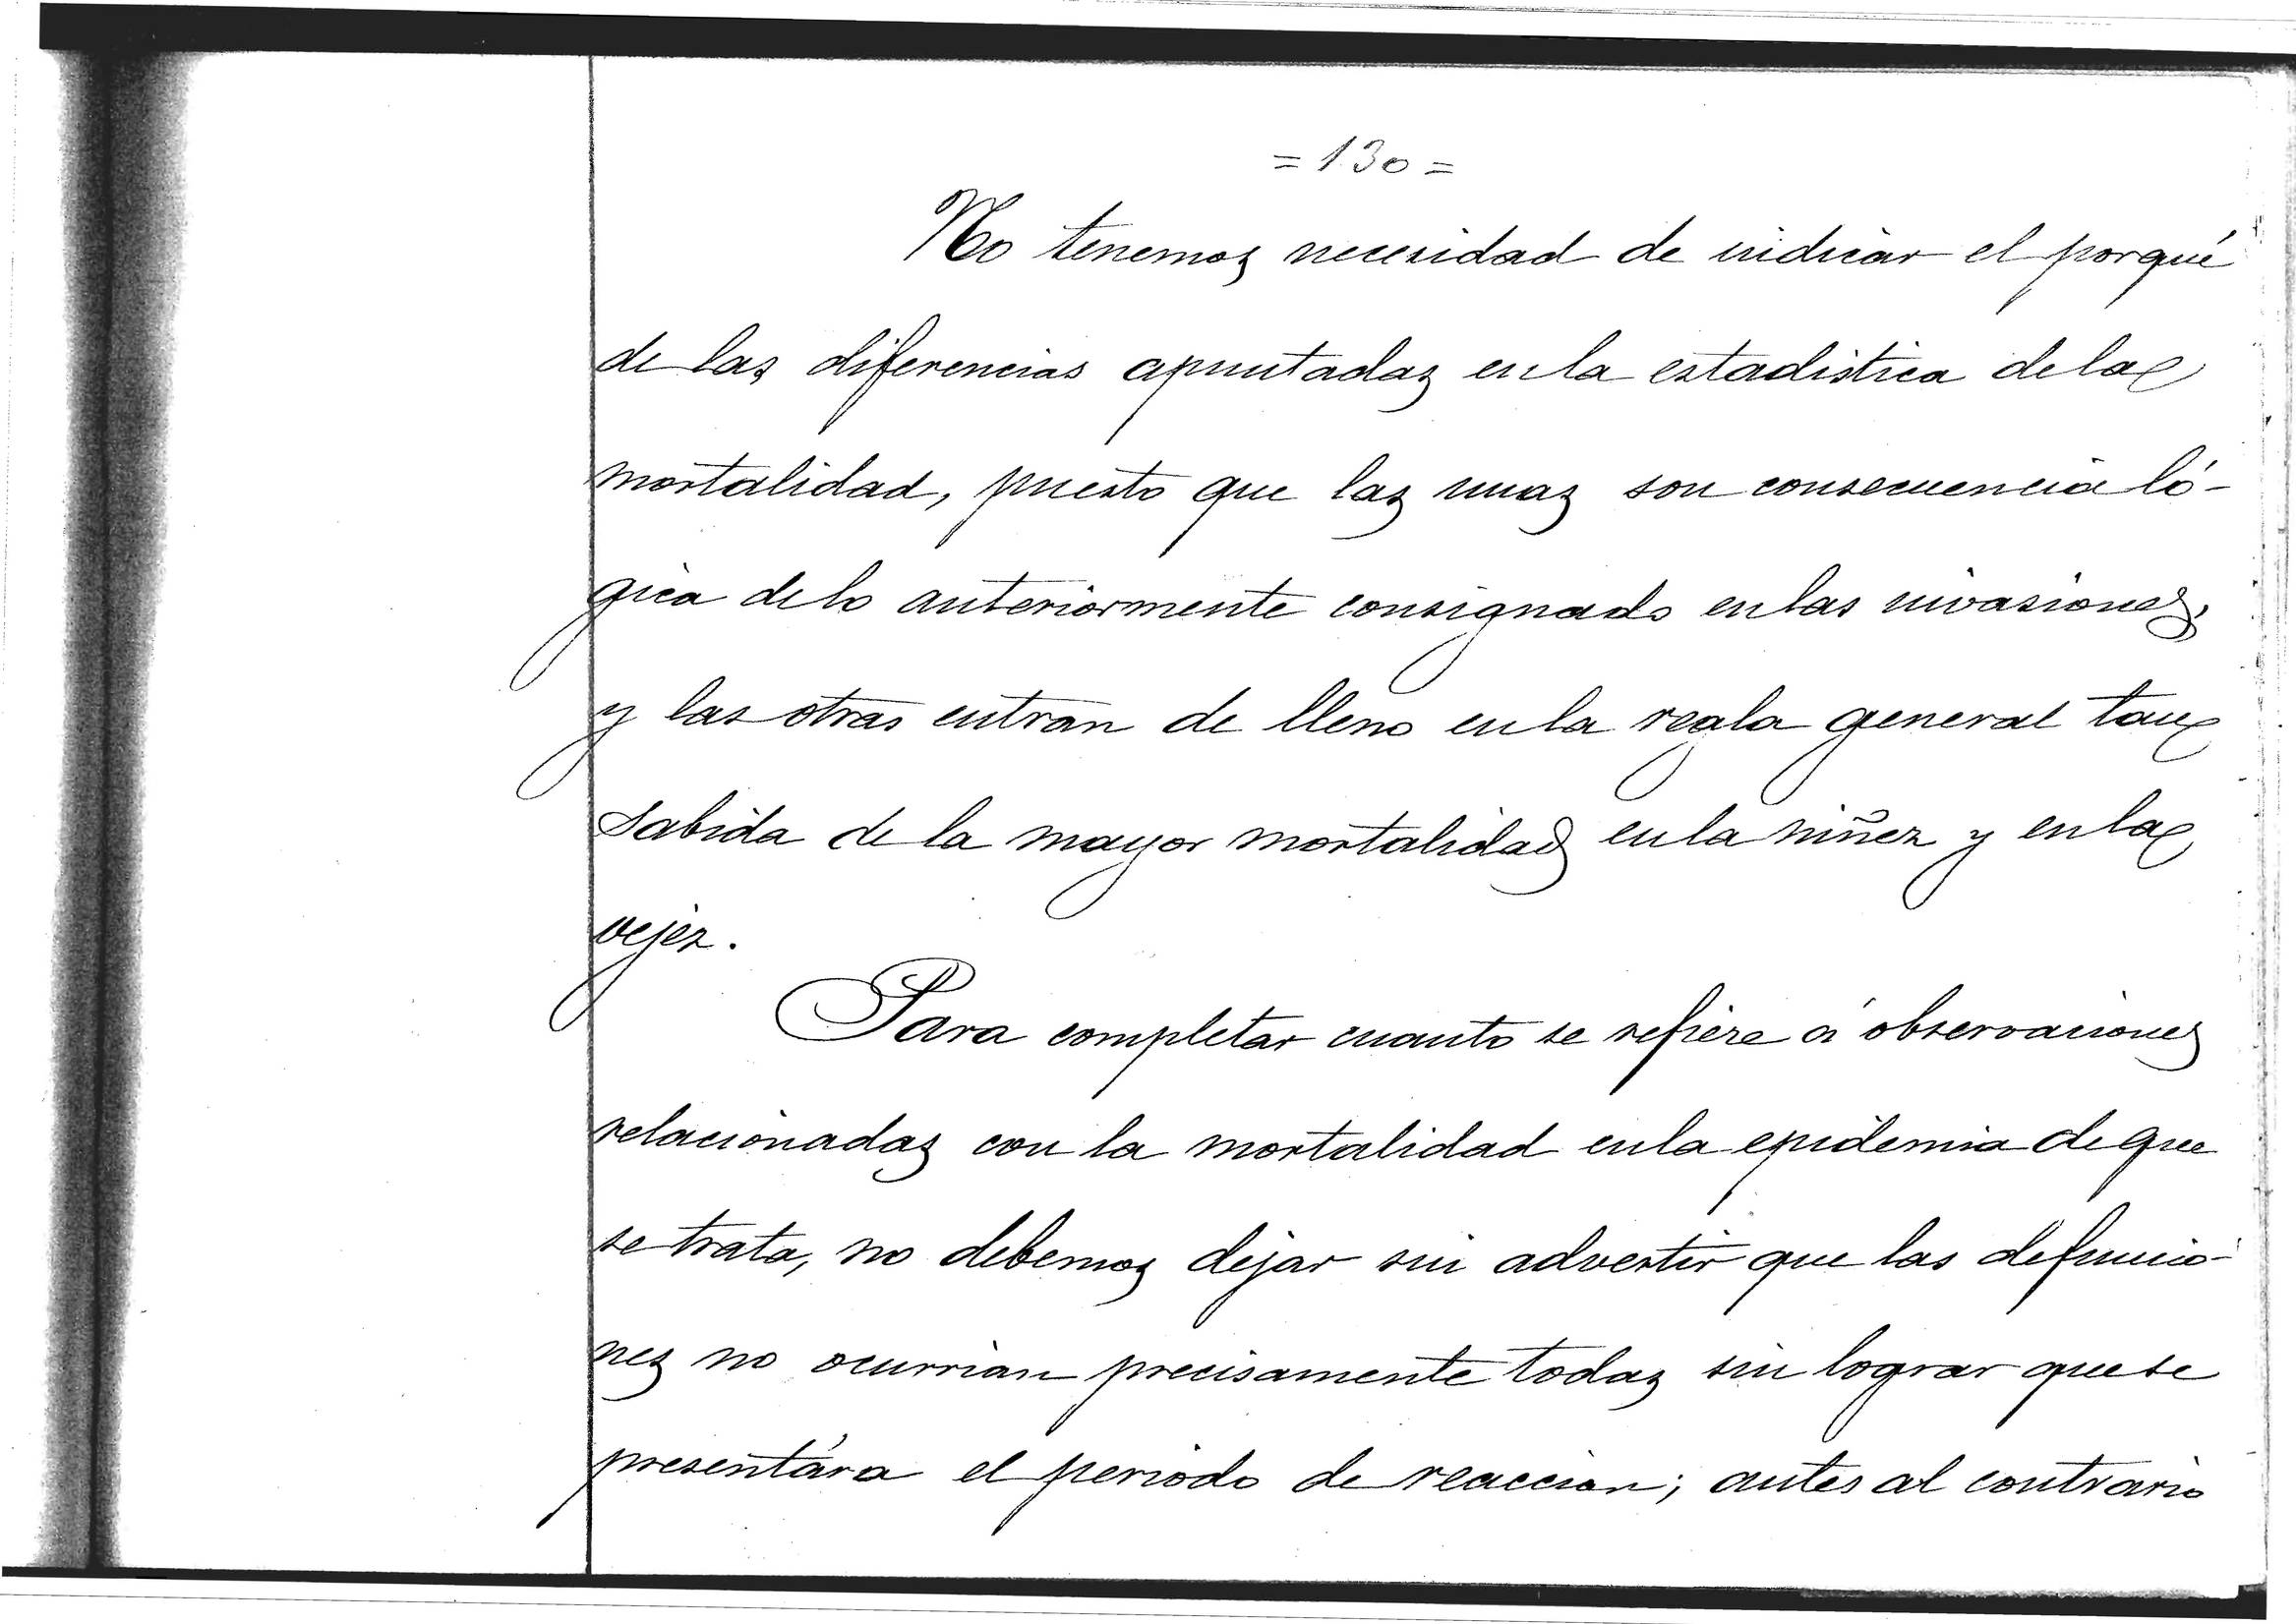 = 130 =
No tenemos necesidad de indicar el porqué
de las diferencias apuntadas en la estadistica de la
mortalidad, puesto que las unas son consecuencia ló-
gica de lo anteriormente consignado en las invasiones,
y las otras entran de lleno en la regla general tan
sabida de la mayor mortalidad en la niñez y en la
vejez.
Para completar cuanto se refiere á observaciones
relacionadas con la mortalidad en la epidemia de que
se trata, no debemos dejar sin advertir que las defuncio-
nes no ocurrian precisamente todas sin lograr que se
presentára el periodo de reaccion; antes al contrario